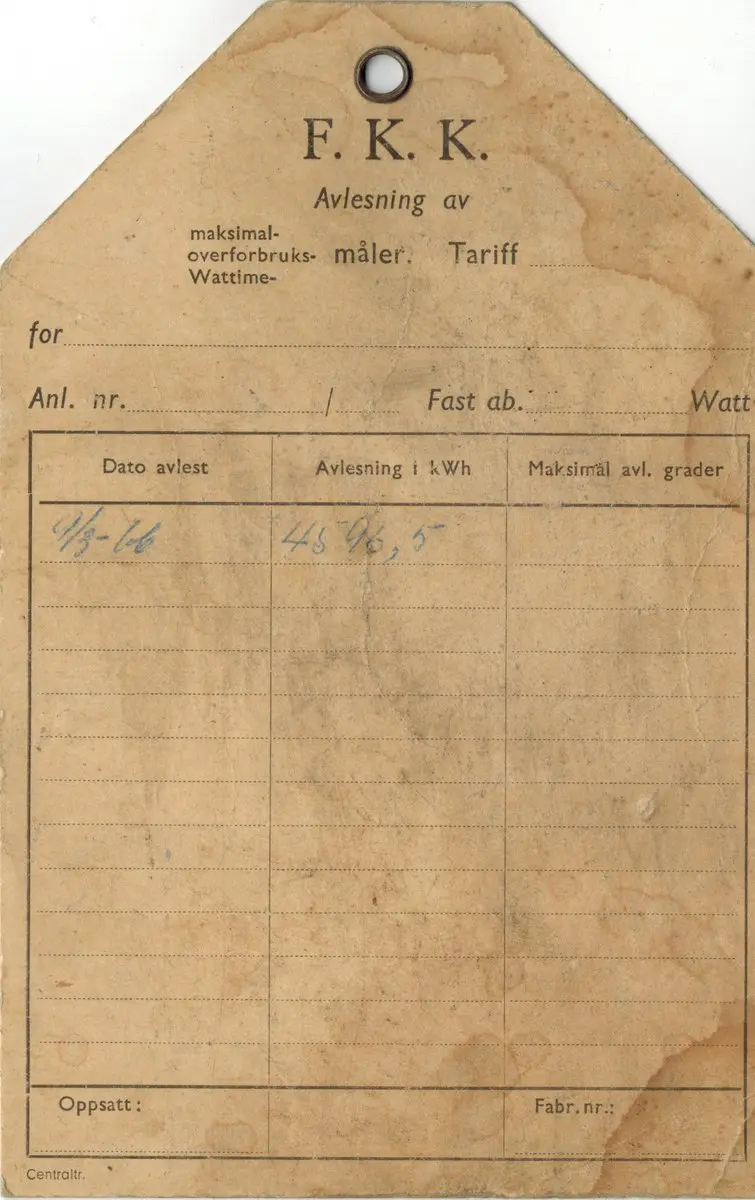 F. K. K.
Avlesning av
maksimal-
overforbruks- måler. Tariff
Wattime-
for
Anl. nr. / Fast ab. Watt
Dato avlest Avlesning i kWh Maksimal avl. grader
9/3-66 4596,5
Oppsatt: Fabr.nr.:
Centraltr.